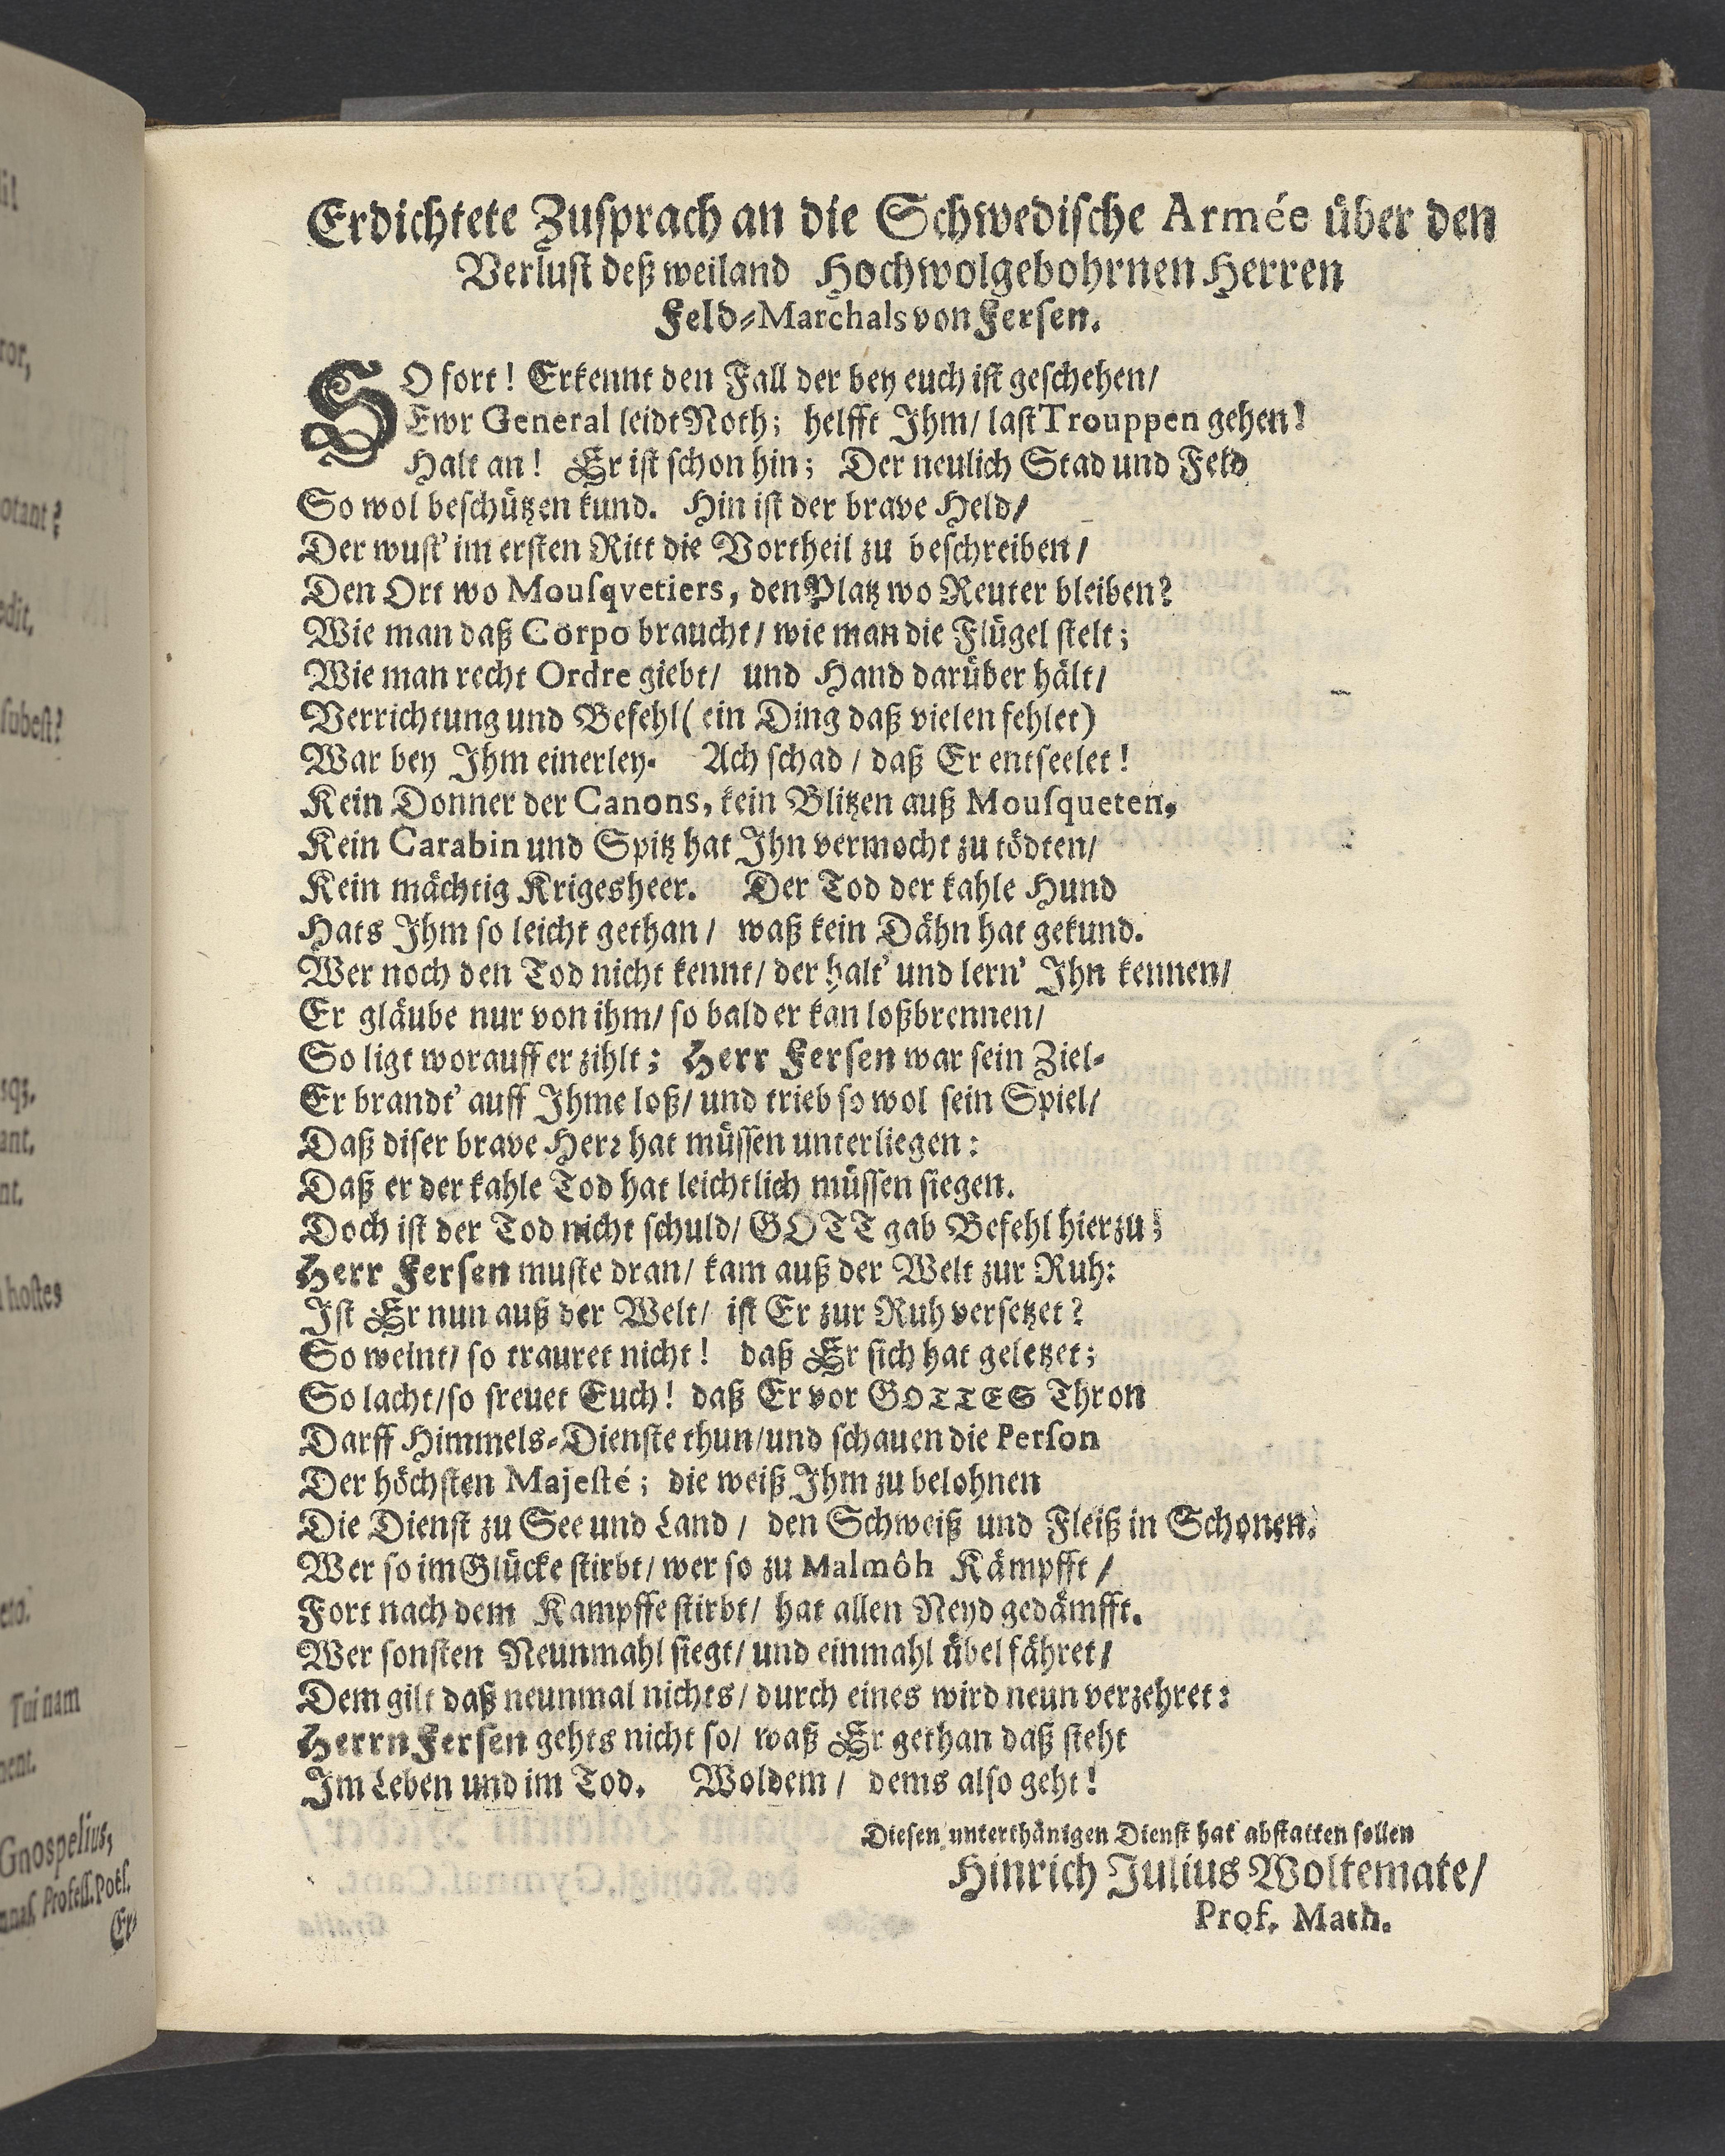 Erdichtete Zusprach an die Schwedische Armée über den
Verlust deß weiland Hochwolgebohrnen Herren
Feld-Marchals von Fersen.
SO fort! Erkennt den Fall der bey euch ist geschehen/
Ewr General leidt Noth; helfft Ihm/ last Trouppen gehen!
Halt an! Er ist schon hin; Der neulich Stad und Feld
So wol beschützen kund. Hin ist der brave Held/
Der wust' im ersten Ritt die Vortheil zu beschreiben/
Den Ort wo Mousqvetiers, den Platz wo Reuter bleiben?
Wie man daß Corpo braucht/ wie man die Flügel stelt;
Wie man recht Ordre giebt/ und Hand darüber hält/
Verrichtung und Befehl (ein Ding daß vielen fehlet)
War bey Ihm einerley. Ach schad/ daß Er entseelet!
Kein Donner der Canons, kein Blitzen auß Mousqueten,
Kein Carabin und Spitz hat Ihn vermocht zu tödten/
Kein mächtig Krigesheer. Der Tod der kahle Hund
Hats Ihm so leicht gethan/ waß kein Dähn hat gekund.
Wer noch den Tod nicht kennt/ der halt' und lern' Ihn kennen/
Er gläube nur von ihm/ so bald er kan loßbrennen/
So ligt worauff er zihlt; Herr Fersen war sein Ziel-
Er brandt' auff Ihme loß/ und trieb so wol sein Spiel/
Daß diser brave Herr hat müssen unterliegen:
Daß er der kahle Tod hat leichtlich müssen siegen.
Doch ist der Tod nicht schuld/ GOTT gab Befehl hierzu;
Herr Fersen muste dran/ kam auß der Welt zur Ruh:
Ist Er nun auß der Welt/ ist Er zur Ruh versetzet?
So weint/ so trauret nicht! daß Er sich hat geletzet;
So lacht/ so freuet Euch! daß Er vor GOTTES Thron
Darff Himmels-Dienste thun/ und schauen die Person
Der höchsten Majesté; die weiß Ihm zu belohnen
Die Dienst zu See und Land/ den Schweiß und Fleiß in Schonen.
Wer so im Glücke stirbt/ wer so zu Malmöh Kämpfft/
Fort nach dem Kampffe stirbt/ hat allen Neyd gedämfft.
Wer sonsten Neunmahl siegt/ und einmahl übel fähret/
Dem gilt daß neunmal nichts/ durch eines wird neun verzehret:
Herrn Fersen gehts nicht so/ waß Er gethan daß steht
Im Leben und im Tod. Wol dem/ dems also geht!
Diesen unterthänigen Dienst hat abstatten sollen
Hinrich Julius Woltemate/
Prof. Math.
otant?
subest?
hostes
Tui nam
Gnospelius,
Profess. Poës.
Er-